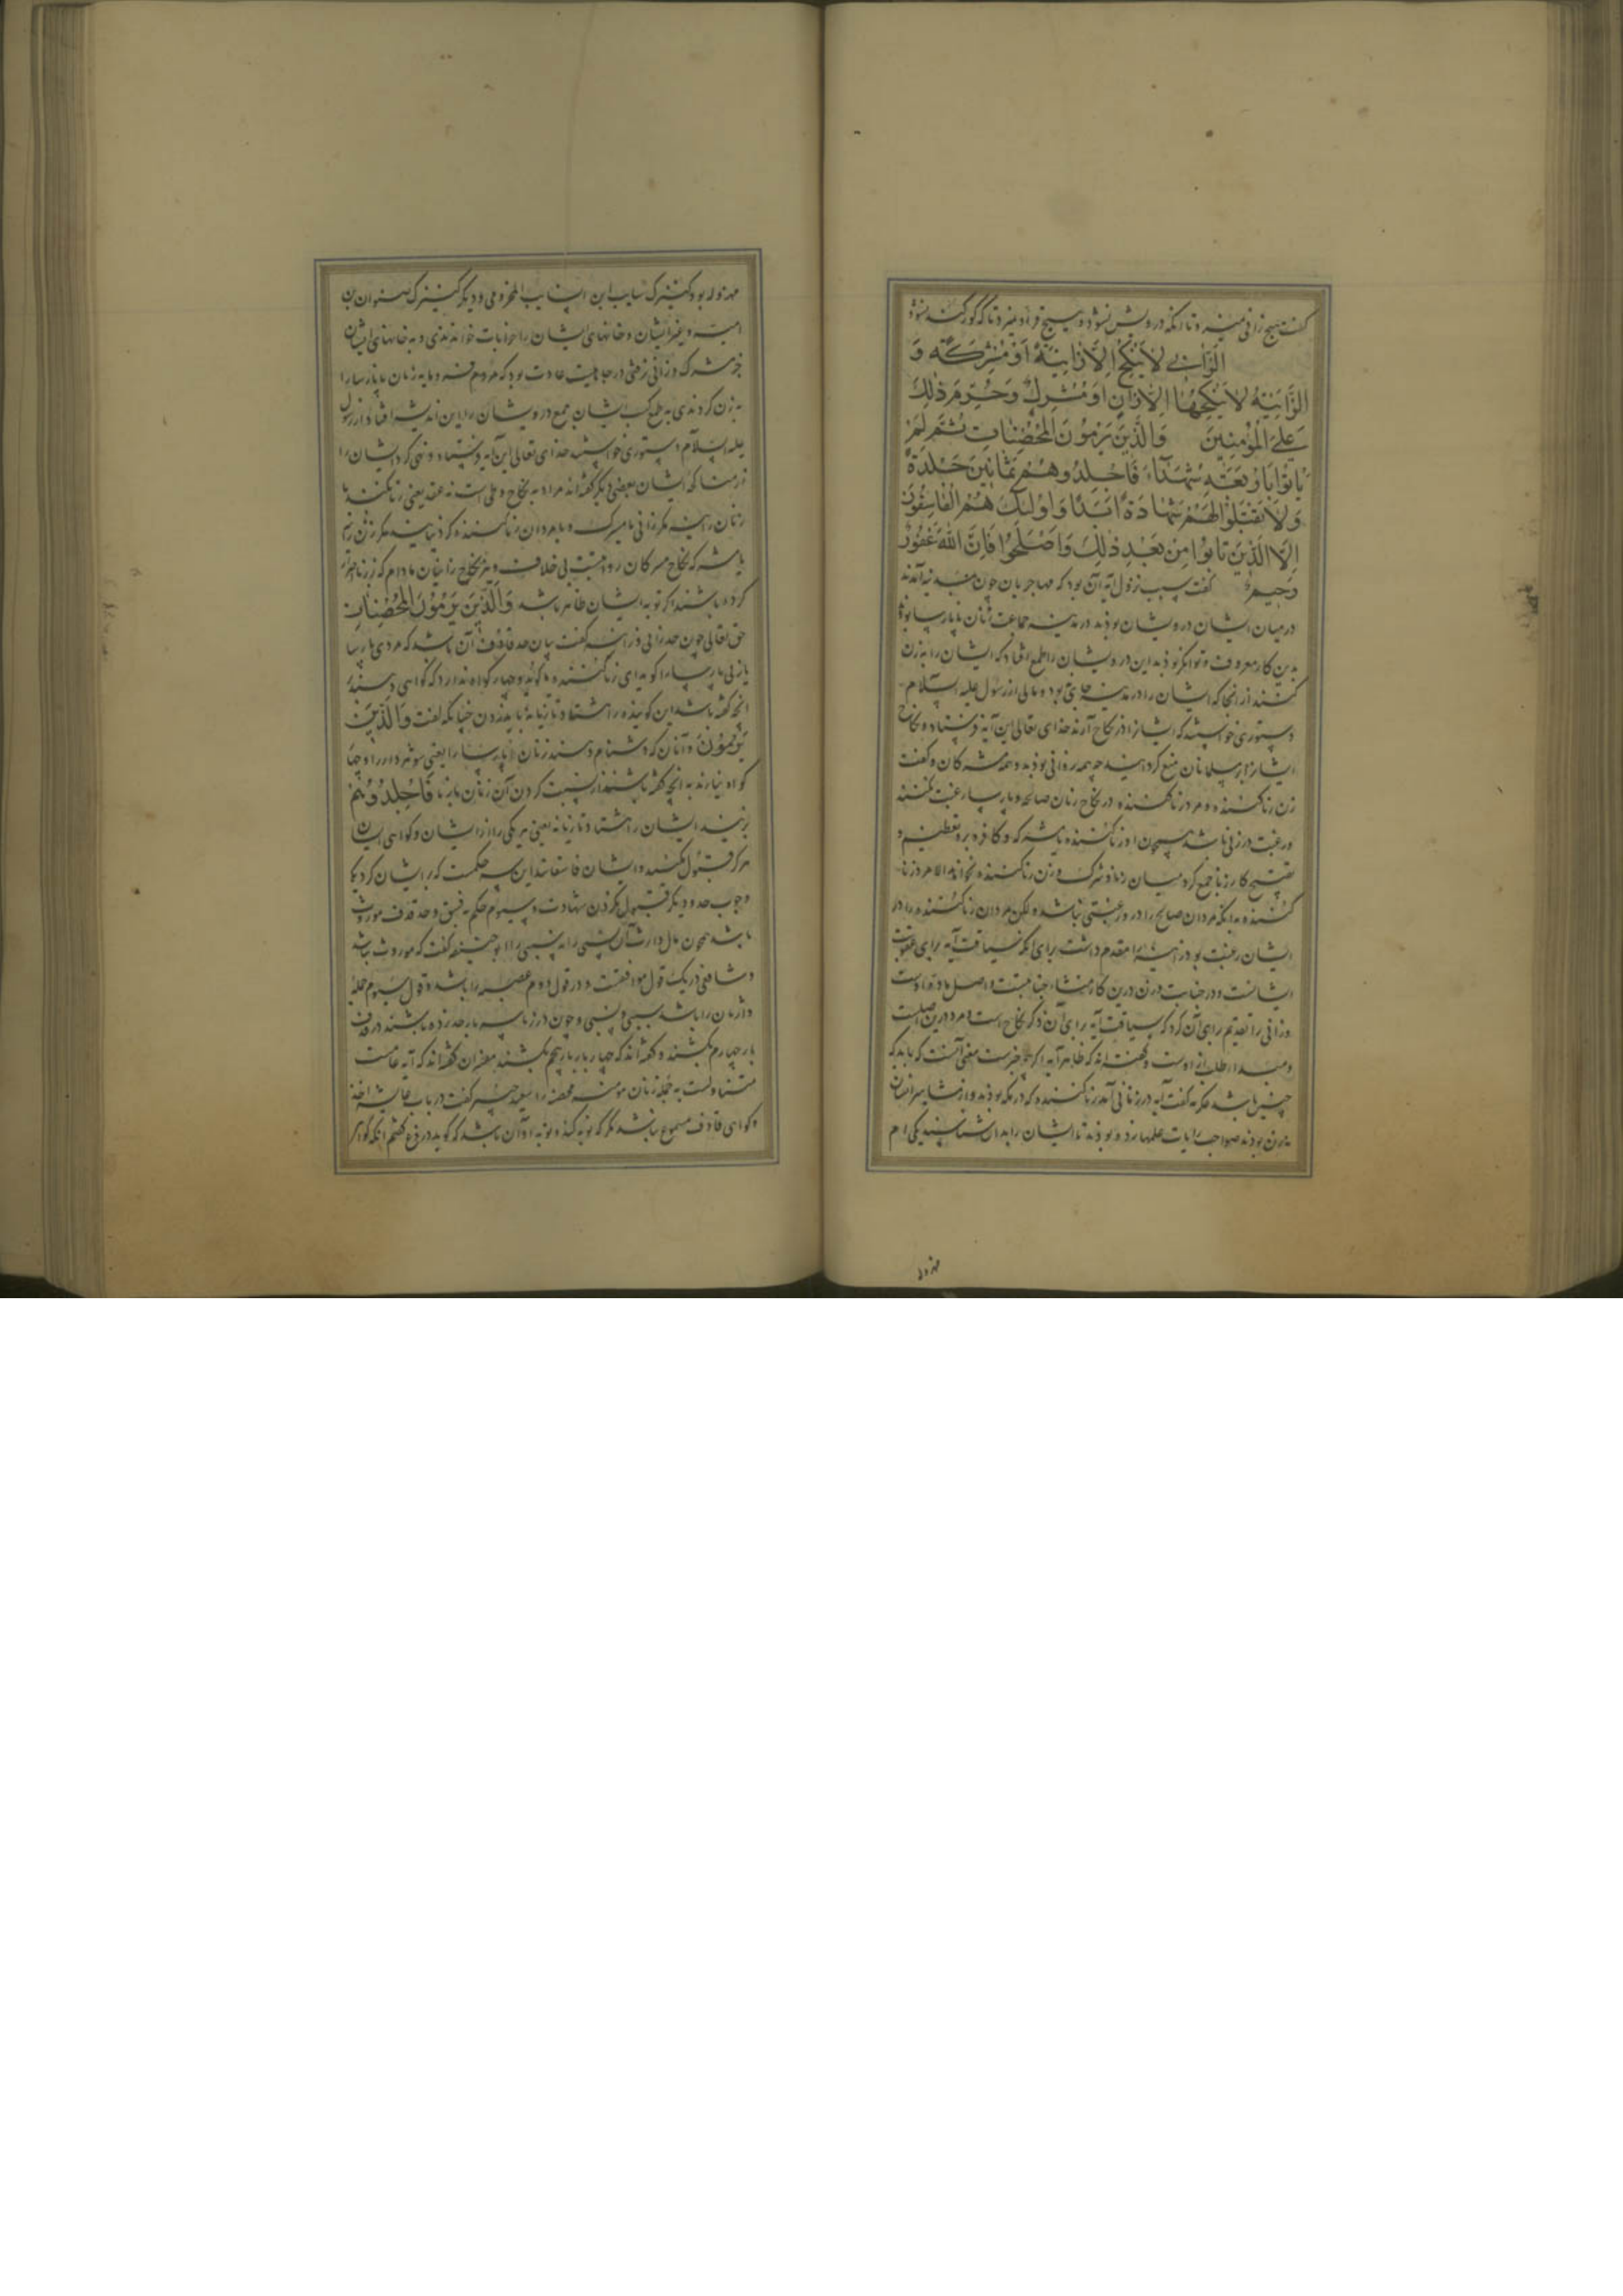 گفت هیچ زانی نمیرد تا انکه درویش نشود و هیچ قواد نمیرد تا که کور نشود
الزَّانِی لَا یَنْکِحُ اِلَّا زَانِیَةً اَوْ مُشْرِکَةً وَ
الزَّانِیَةُ لَا یَنْکِحُهَا اِلَّا زَانٍ اَوْ مُشْرِكٌ وَحُرِّمَ ذٰلِكَ
عَلَی الْمُؤْمِنِینَ وَالَّذِینَ یَرْمُونَ الْمُحْصَنَاتِ ثُمَّ لَمْ
یَاتُوْا بِاَرْبَعَةِ شُهَدَآءَ فَاجْلِدُوهُمْ ثَمَانِینَ جَلْدَةً
وَلَا تَقْبَلُوْا لَهُمْ شَهَادَةً اَبَدًا وَاُولٰئِكَ هُمُ الْفَاسِقُونَ
اِلَّا الَّذِینَ تَابُوْا مِنْ بَعْدِ ذٰلِكَ وَاَصْلَحُوْا فَاِنَّ اللهَ غَفُورٌ
رَحِیمٌ گفت سبب نزول آیه آن بود که مهاجریان چون بمدینه آمدند
در میان ایشان درویشان بوذند در مدینه جماعت زنان ناپارسا بوذند
بدین کار معروف و توانگر بوذند این درویشان را طمع افتاد که ایشان را به زن
کنند از انجا که ایشان را در مدینه جای نبود و مالی از رسول علیه السلام
دستوری خواستند که ایشانرا در نکاح آرند خدای تعالی این آیه فرستاد و نکاح
ایشانرا بر مسلمانان منع کرد همه روانی بوذند و همه مشرکان و گفت
زن زناکننده و مرد زناکننده در نکاح زنان صالحه و پارسا رغبت نکنند
و رغبت در زنی باشد همچون او زناکننده یا مشرکه و کافره بر تعظیم و
تقبیح کار زنا جمع کرد میان زنا و شرک و زن زناکننده نخواهد الا مرد زنا
کننده بدانکه مردان صالح را در و رغبتی نباشد و لکن مردان زناکننده را در
ایشان رغبت بود زانیه را مقدم داشت برای انکه سیاقت آیه برای عقوبت
ایشانست و در خیانت زن درین کار منشاء جنایتست و اصل ماده اوست
و زانی را تقدیم برای آن کرد که سیاقت آیه برای ذکر نکاح است و مرد درین اصلست
و مبدا طلب از اوست و گفته اند که ظاهر آیه اگرچه خبرست معنی آنست که باید که
چنین باشد عکرمه گفت آیه در زنانی آمد زناکننده که در مکه بوذند و از مشاهیر ایشان
نه زن بوذند صواحب رایات علمها زده بوذند تا ایشان را بدان شناسند یکی ام
مهزوله
مهزوله بود کنیزک سایب ابن السایب المخزومی و دیگر کنیزک صفوان بن
امیه و غیر ایشان و خانهای ایشان را خرابات خواندندی و به خانهای ایشان
جز مشرک و زانی نرفتی در جاهلیت عادت بود که مردم فرومایه زنان ناپارسا را
به زن کردندی به طمع کسب ایشان جمع درویشان را این اندیشه افتاد از رسول
علیه السلام دستوری خواستند خدای تعالی این آیه فرستاد و نهی کرد ایشان را
از مناکحه ایشان بعضی دیگر گفته اند مراد به نکاح وطی است نه عقد یعنی زنا نکنند با
زنان زانیه مگر زانی یا مشرک و با مردان زناکننده گرد نیاید مگر زن زانیه
یا مشرکه نکاح مشرکان روا نیست بی خلاف و نیز نکاح زانیان مادام که از زنا توبه
کرده باشند اگر توبه ایشان ظاهر باشد وَالَّذِینَ یَرْمُونَ الْمُحْصَنَاتِ
حق تعالی چون حد زانی و زانیه گفت بیان حد قاذف آن باشد که مردی پارسا
یا زنی پارسا را گوید ای زناکننده و گوینده چهار گواه ندارد که گواهی دهند
انچه گفته باشد این گوینده را هشتاد تازیانه بباید زدن چنانکه گفت وَالَّذِینَ
یَرْمُونَ و آنان که دشنام دهند زنان پارسا را یعنی شوهردار را و چهار
گواه نیارند به انچه گفته باشند از نسبت کردن آن زنان بزنا فَاجْلِدُوهُمْ
بزنید ایشان را هشتاد تازیانه یعنی هر یکی را از ایشان و گواهی ایشان
هرگز قبول مکنید و ایشان فاسقانند این سه حکمست که بر ایشان کرد یکی
وجوب حد و دیگر قبول نکردن شهادت و سیوم حکم به فسق و حد قذف موروث
باشد همچون مال وارثان نسبی را نه سببی را ابوحنیفه گفت که موروث نباشد
و شافعی در یک قول موافقست و در قول دوم عصبه را باشد و قول سیوم جمله
وارثان را باشد سببی و نسبی و چون در زنا سه بار حد زده باشند در قذف
بار چهارم بکشند و گفته اند که چهار بار بار پنجم بکشند مفسران گفته اند که آیه عامست
متناولست به جمله زنان مومنه محصنه را سعید جبیر گفت در باب عایشه آمد
و گواهی قاذف مسموع نباشد مگر که توبه کند و توبه او آن باشد که گوید دروغ گفتم انکه گواهی